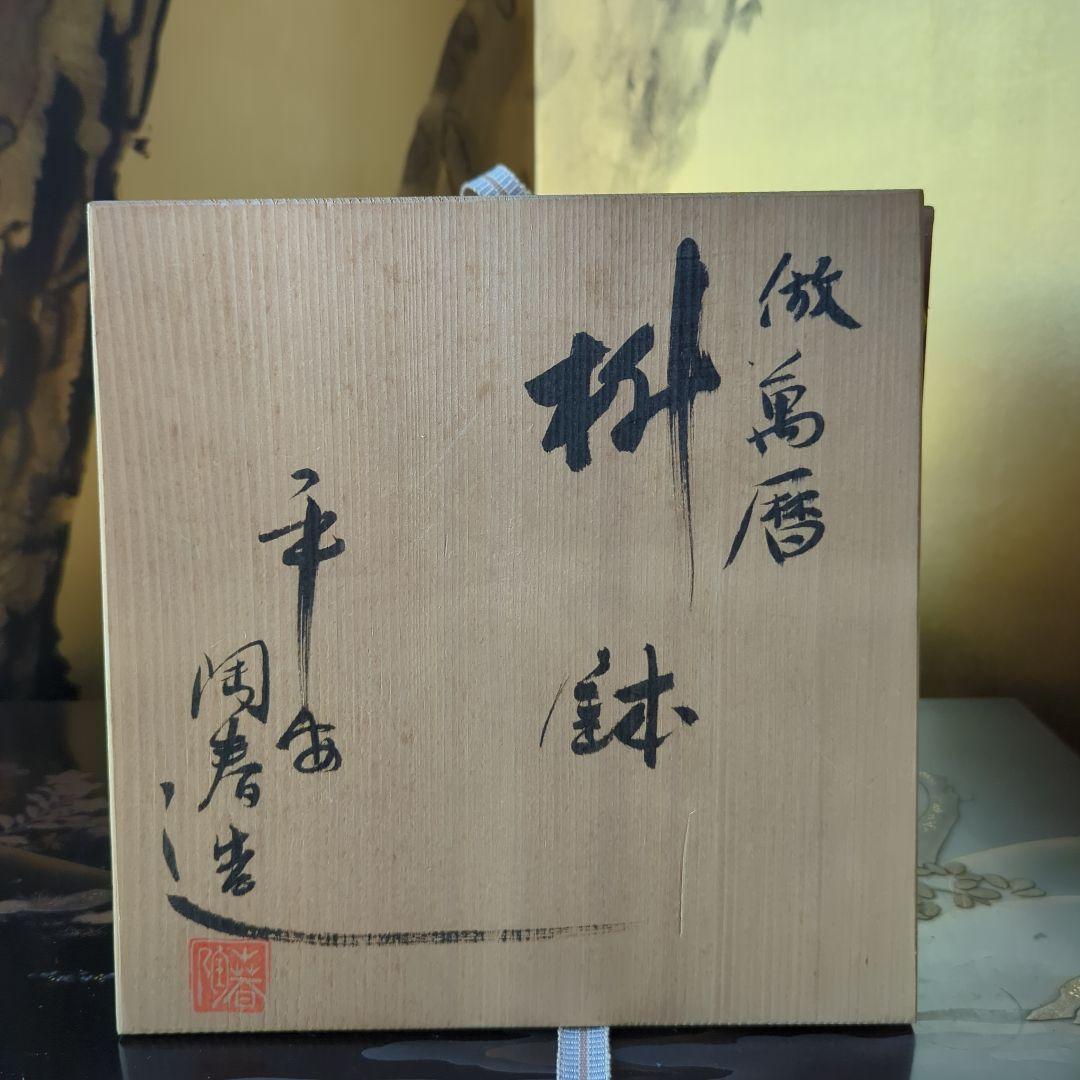 倣萬暦
枡鉢
平安
陶春造
陶春